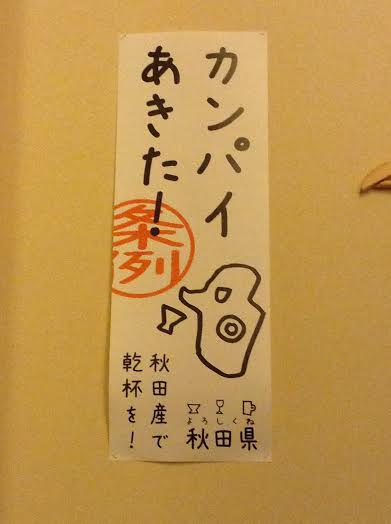 カンパイ
あきた！
条例
秋田産で
乾杯を！
よろしくね
秋田県